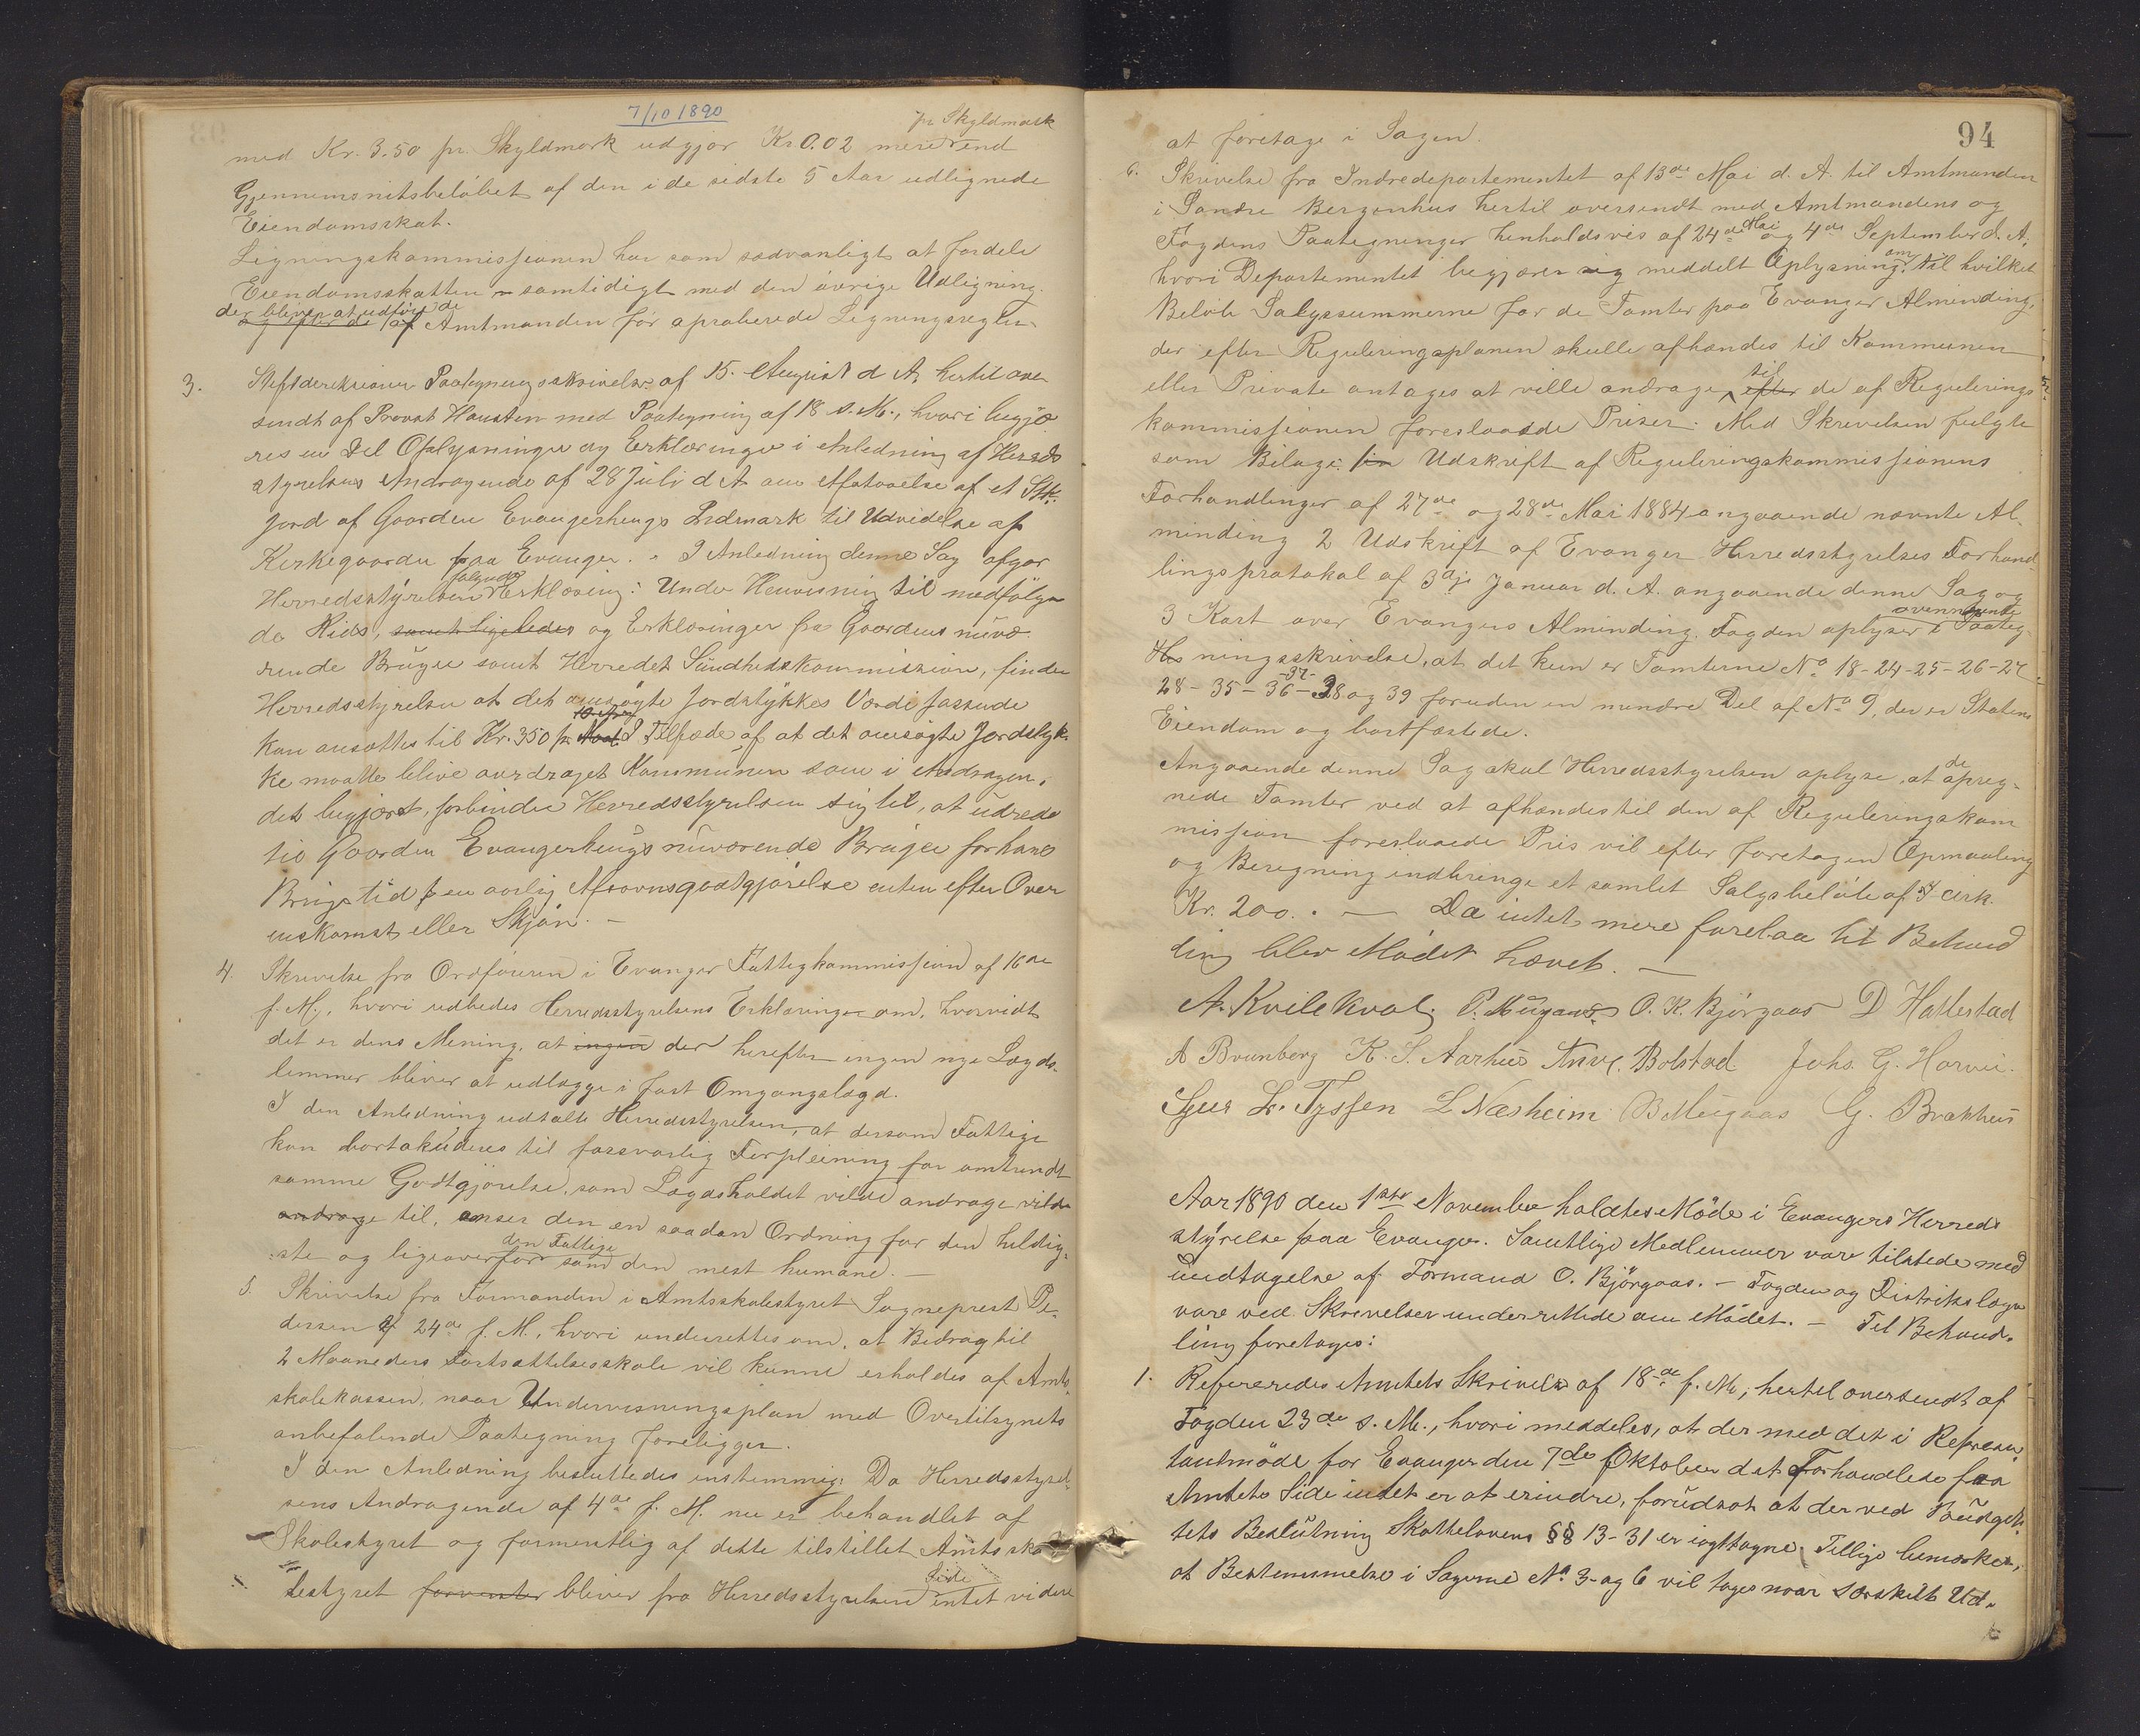 7/10 1890
pr Skyldmark
med Kr. 3.50 pr. Skyldmork udgjør Kr 0.02 mere end
Gjennemsnitsbeløbet af den i de sidste 5 Aar udlignede
Eiendomsskat.
Ligningskommissionen har som sædvanligt at fordele
Eiendomsskatten samtidigt med den øvrige Udligning.
der bliver at udføre
af Amtmanden før aproberede Ligningsregler.
3. Stiftsdireksionens Paategningsskrivelse af 15. August d A, hertil over
sendt af Provst Hausten med Paategning af 18 s. M., hvori begjæ
res en Del Oplysninger og Erklæringer i Anledning af Herreds
styrelsens Andragende af 28 Juli d A om Afstaaelse af et Stk.
Jord af Gaarden Evangerhengs Indmark til Udvidelse af
Kirkegaarden paa Evanger. I Anledning denne Sag afgav
følgende
Herredsstyrelsen Erklæring: Under Henvisning til medfølgen
de Rids, samt ligeledes og Erklæringer fra Gaardens nuvæ
rende Bruger samt Herredets Sundhedskommission, finder
Herredsstyrelsen at det omsøgte Jordstykkes Værdi passende
kan ansættes til Kr. 350 pr. I Tilfælde af at det omsøgte Jordstyk
ke maatte blive overdraget Kommunen som i Andragen,
det begjært, forbinder Herredsstyrelsen sig til, at udrede
til Gaarden Evangerhengs nuværende Bruger for hans
Brugstid en aarlig Afsavnsgodtgjørelse enten efter Over
enskomst eller Skjøn. —
4. Skrivelse fra Ordføreren i Evanger Fattigkommission af 16de
f. M., hvori udbedes Herredsstyrelsens Erklæringer om, hvorvidt
det er dens Mening, at ingen der herefter ingen nye Lægds-
lemmer bliver at udlægge i fast Omgangslægd.
I den Anledning udtalte Herredsstyrelsen, at dersom Fattige
kan bortakorderes til forsvarlig Forpleining for omtrendt
samme Godtgjørelse, som Lægdsholdet vilde andrage vilde
andrage til, anser den en saadan Ordning for den heldig-
den Fattige
ste og ligeoverfor som den mest humane. —
5. Skrivelse fra Formanden i Amtsskolestyret Sogneprest Pe-
dersen af 24de f. M., hvori underrettes om, at Bidrag til
2 Maaneders Fortsættelsesskole vil kunne erholdes af Amts-
skolekassen, naar Undervisningsplan med Overtilsynets
anbefalende Paategning foreligger.
I den Anledning besluttedes enstemmig: Da Herredsstyrel-
sens Andragende af 4de f. M. nu er behandlet af
Skolestyret og formentlig af dette tilstillet Amtssko
Side
lestyret forventer bliver fra Herredsstyrelsen intet videre
94
at foretage i Sagen.
6. Skrivelse fra Indredepartementet af 13de Mai d. A. til Amtmanden
i Søndre Bergenhus hertil oversendt med Amtmandens og
Fogdens Paategninger henholdsvis af 24de Mai og 4de September d. A.
hvori Departementet begjærer sig meddelt Oplysning om til hvilket
Beløb Salgssummerne for de Tomter paa Evanger Alminding,
der efter Reguleringsplanen skulle afhændes til Kommunen
til
eller Private antages at ville andrage efter de af Regulerings
kommissionen foreslaaede Priser. Med Skrivelsen fulgte
som Bilage: Udskrift af Reguleringskommissionens
Forhandlinger af 27de og 28de Mai 1884 angaaende nævnte Al-
minding 2 Udskrift af Evanger Herredsstyrelses Forhand-
lingsprotokol af 3dje Januar d. A. angaaende denne Sag og
ovennævnte
3 Kart over Evangers Alminding. Fogden oplyser i Paateg-
ningsskrivelse, at det kun er Tomterne No 18-24-25-26-27
37-
28-35-36-38 og 39 foruden en mindre Del af No 9, der er Statens
Eiendom og bortfæstede.
Angaaende denne Sag skal Herredsstyrelsen oplyse, at de opreg-
nede Tomter ved at afhændes til den af Reguleringskom
mission foreslaaede Pris vil efter foretagen Opmaaling
og Beregning indbringe et samlet Salgsbeløb af cirk.
Kr. 200. — Da intet mere forelaa til Behand
ling blev Mødet hævet. —
A. Kvilekval P. Mugaas O. K. Bjørgaas D Hallestad
A Brunborg K. S. Aarhus Anve. Bolstad Johs. G. Horvei.
Sjur L. Tyssen L Næsheim B Mugaas G. Brækhus
Aar 1890 den 1ste November holdtes Møde i Evangers Herreds
styrelse paa Evanger. Samtlige Medlemmer vare tilstede med
Undtagelse af Formand O. Bjørgaas. — Fogden og Distriktslægen
vare ved Skrivelser underrettede om Mødet. — Til Behand-
ling foretages:
1. Refereredes Amtets Skrivelse af 18de f. M., hertil oversendt af
Fogden 23de s. M., hvori meddeles, at der med det i Repræsen
tantmøde for Evanger den 7de Oktober d A Forhandlede fra
Amtets Side intet er at erindre, forudsat at der ved Budget-
tets Beslutning Skattelovens §§ 13-31 er iagttagne. Tillige bemærkes,
at Bestemmelse i Sagerne No 3 og 6 vil tages naar særskilt Ud-